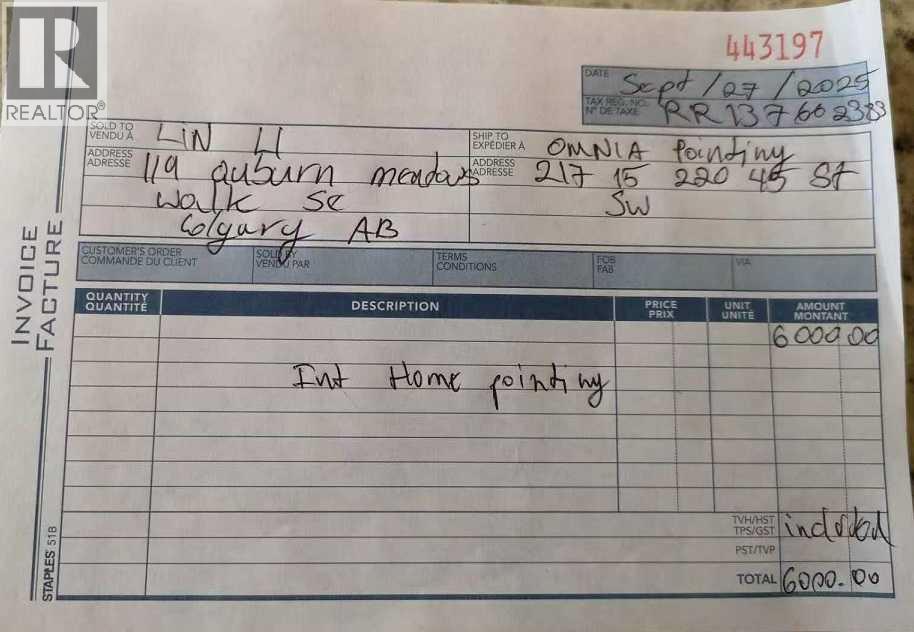 REALTOR®
443197
DATE Sept/27/2025
TAX REG. NO.
N° DE TAXE RR 137602383
SOLD TO
VENDU À LIN LI
ADDRESS
ADRESSE 119 auburn meadows
walk SE
Calgary AB
SHIP TO
EXPÉDIER À OMNIA Painting
ADDRESS
ADRESSE 217 15 220 45 St
SW
INVOICE
FACTURE
CUSTOMER'S ORDER
COMMANDE DU CLIENT
SOLD BY
VENDU PAR
TERMS
CONDITIONS
FOB
FAB
VIA
QUANTITY
QUANTITÉ
DESCRIPTION
PRICE
PRIX
UNIT
UNITÉ
AMOUNT
MONTANT
6000.00
Int Home painting
TVH/HST
TPS/GST included
PST/TVP
TOTAL 6000.00
STAPLES 51B